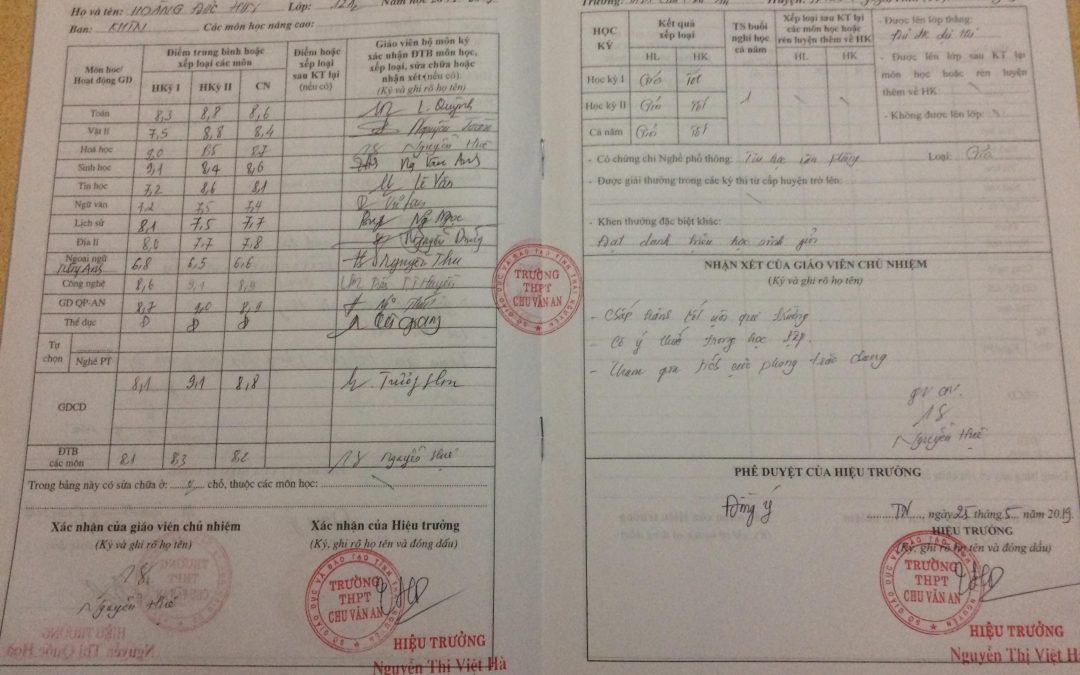 Họ và tên: HOÀNG ĐỨC HUY Lớp: 12 Năm học
Ban: KHTN Các môn học nâng cao:
Môn học/ Hoạt động GD
Điểm trung bình hoặc xếp loại các môn
HKỳ I HKỳ II CN
Điểm hoặc xếp loại sau KT lại (nếu có)
Giáo viên bộ môn ký xác nhận ĐTB môn học, xếp loại, sửa chữa hoặc nhận xét (nếu có).
(Ký và ghi rõ họ tên)
Toán 8,3 8,8 8,6 L. Quỳnh
Vật lí 7,5 8,8 8,4 Nguyễn
Hoá học 9,0 8,5 8,7 Nguyễn Huế
Sinh học 9,1 8,4 8,6 Ng Vân Anh
Tin học 7,2 8,6 8,1 Lê Vân
Ngữ văn 7,2 7,5 7,4
Lịch sử 8,1 7,5 7,7 Ng Ngọc
Địa lí 8,0 7,7 7,8 Nguyễn
Ngoại ngữ Tiếng Anh 6,8 6,5 6,6 Nguyễn Thu
Công nghệ 8,6 9,1 8,9
GD QP-AN 8,7 9,0 8,9
Thể dục Đ Đ Đ
Tự chọn
Nghề PT
GDCD 8,1 9,1 8,8
ĐTB các môn 8,1 8,3 8,2 Nguyễn Huế
Trong bảng này có sửa chữa ở: chỗ, thuộc các môn học:
Xác nhận của giáo viên chủ nhiệm
(Ký và ghi rõ họ tên)
Nguyễn Huế
Xác nhận của Hiệu trưởng
(Ký, ghi rõ họ tên và đóng dấu)
SỞ GIÁO DỤC VÀ ĐÀO TẠO TỈNH THÁI NGUYÊN
TRƯỜNG
THPT
CHU VĂN AN
HIỆU TRƯỞNG
Nguyễn Thị Việt Hà
HIỆU TRƯỞNG
Nguyễn Thị Quốc Hoà
TRƯỜNG
THPT
CHU VĂN AN
HỌC KỲ
Kết quả xếp loại
HL HK
TS buổi nghỉ học cả năm
Xếp loại sau KT lại các môn học hoặc rèn luyện thêm về HK
HL HK
Học kỳ I Giỏi Tốt
Học kỳ II Giỏi Tốt
Cả năm Giỏi Tốt
1
Được lên lớp thẳng:
- Được lên lớp sau KT lại môn học hoặc rèn luyện thêm về HK
- Không được lên lớp:
- Có chứng chỉ Nghề phổ thông: Tin học văn phòng Loại: Giỏi
- Được giải thưởng trong các kỳ thi từ cấp huyện trở lên:
- Khen thưởng đặc biệt khác:
Đạt danh hiệu học sinh giỏi
NHẬN XÉT CỦA GIÁO VIÊN CHỦ NHIỆM
(Ký và ghi rõ họ tên)
- Chấp hành tốt nội quy trường
- Có ý thức trong học tập.
- Tham gia tích cực phong trào chung
GVCN
Nguyễn Huế
PHÊ DUYỆT CỦA HIỆU TRƯỞNG
Đồng ý
TN, ngày 25 tháng 5 năm 2019
HIỆU TRƯỞNG
(Ký, ghi rõ họ tên và đóng dấu)
SỞ GIÁO DỤC VÀ ĐÀO TẠO TỈNH THÁI NGUYÊN
TRƯỜNG
THPT
CHU VĂN AN
HIỆU TRƯỞNG
Nguyễn Thị Việt Hà